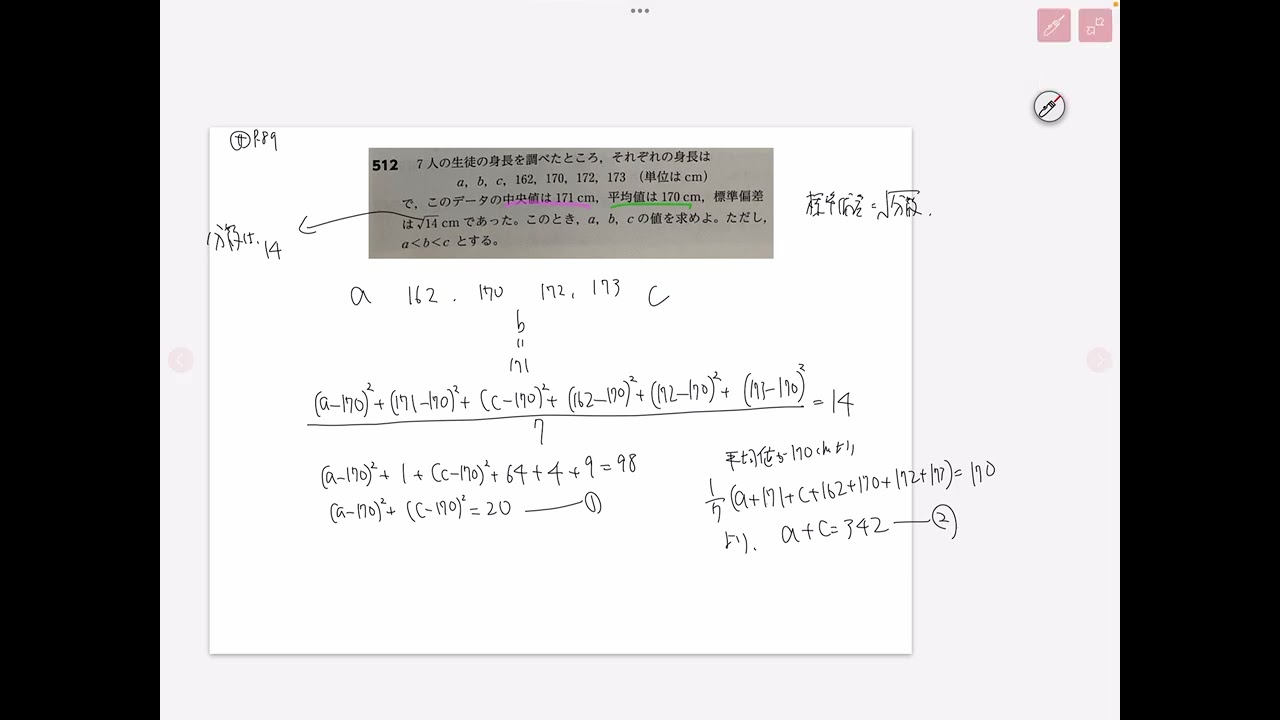 P.89
512 7人の生徒の身長を調べたところ,それぞれの身長は
a, b, c, 162, 170, 172, 173 (単位は cm)
で,このデータの中央値は 171 cm,平均値は 170 cm,標準偏差
は √14 cm であった。このとき,a, b, c の値を求めよ。ただし,
a<b<c とする。
標準偏差=√分散.
分散は、14
a 162. 170 172. 173 c
b
=
171
((a-170)²+(171-170)²+(c-170)²+(162-170)²+(172-170)²+(173-170)²)/7 = 14
(a-170)²+1+(c-170)²+64+4+9=98
(a-170)²+(c-170)²=20 ―①
平均値が170cmより
1/7(a+171+c+162+170+172+173)=170
より、a+c=342 ―②